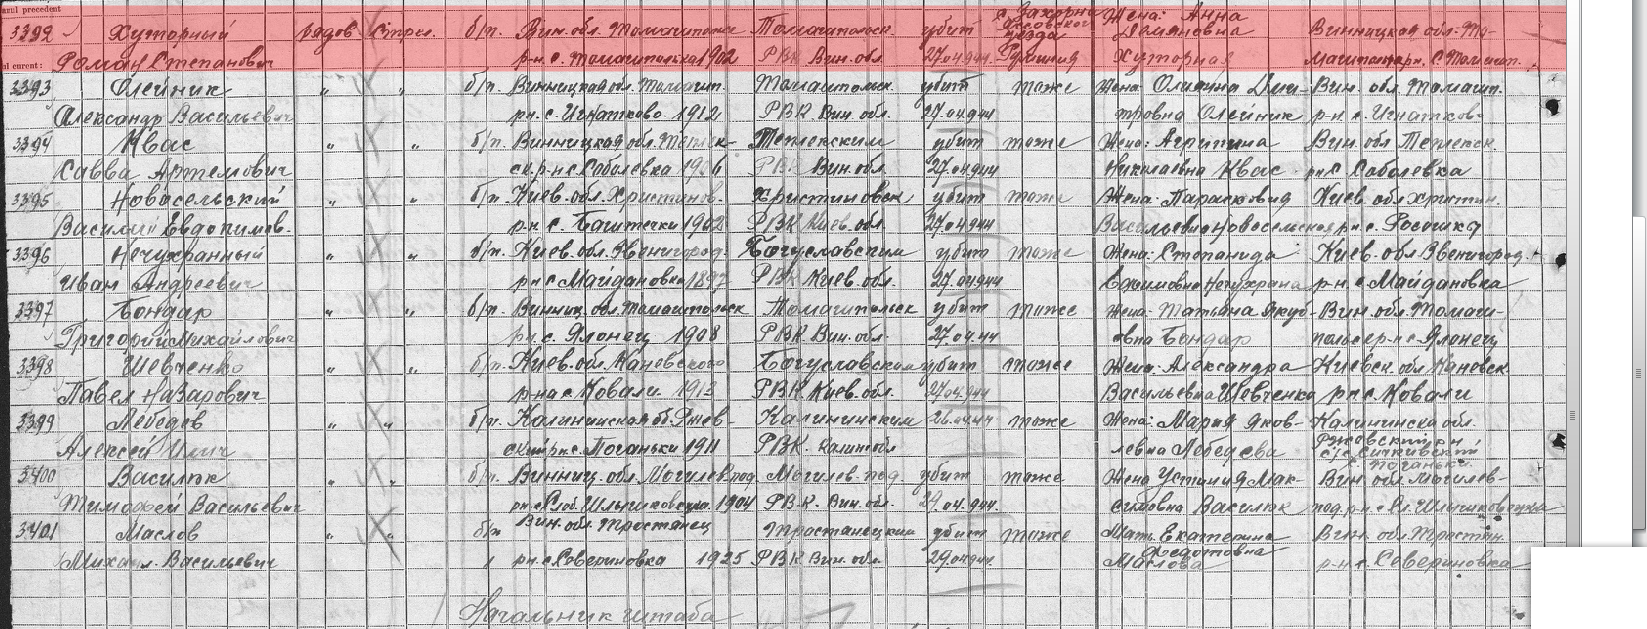 anul precedent
3392 Хуторный рядов Стрел. б/п. Вин. обл. Томашпольс Томашпольск. убит с. Захорни Ясского уезда Жена: Анна Демяновна Винницкая обл. То-
l curent: Роман Степанович р-н с. Томашполька 1902 РВК Вин. обл. 27.04.944 Румыния Хуторная машпол. р-н. С. Томашп.
3393 Олейник " " б/п. Винницкая обл. Томашп. Томашпольск. убит тоже Жена Олияна Дми- Вин. обл. Томашп.
Александр Васильевич р-н. с. Игнатково 1912 РВК Вин. обл. 27.04.944 тровна Олейник р-н. с. Игнатков-
3394 Квас " " б/п. Винницкая обл. Теплик- Теплекским убит тоже Жена: Агрипина Вин. обл Теплекск
Савва Артемович ск. р-н с. Соболевка 1906 РВК Вин. обл. 27.04.944 Николаевна Квас р-н с. Соболевка
3395 Новосельский " " б/п. Киев. обл. Христинов- Христиновск убит тоже Жена: Парасковия Киев. обл. Христин.
Василий Евдокимов. р-н с. Баштечки 1902 РВК Киев. обл. 27.04.944 Васильевна Новосельская р-н с. Росошка
3396 Нечухранный " " б/п. Киев. обл. Звенигород- Богуславским убит тоже Жена: Степанида Киев. обл Звенигород.
Иван Андреевич р-н с Майдановка 1897 РВК Киев. обл. 27.04.944 Ефимовна Нечухрана р-н с. Майдановка
3397 Бондар " " б/п. Винниц. обл. Томашпольск Томашпольск убит тоже Жена: Татьяна Якуб- Вин. обл. Томаш-
Григорий Михайлович р-н. с. Яланец 1908 РВК Вин. обл. 27.04.44 овна Бондар польс р-н с Яланец
3398 Шевченко " " б/п. Киев. обл. Каневского Богуславским убит тоже Жена: Александра Киевск. обл Каневск
Павел Назарович р-на с. Ковали 1913 РВК Киев. обл. 27.04.944 Васильевна Шевченко р-н с. Ковали
3399 Лебедев " " б/п. Калининская об. Ржев- Калининским 26.04.44 тоже Жена: Мария Яков- Калининска обл.
Алексей Ильич ский р-н с. Поганьки 1911 РВК. Калин обл левна Лебедева Ржевский р-н с. Поганьки.
3400 Василюк " б/п. Винниц. обл. Могилев под Могилев-под. убит тоже Жена Устиния Мак- Вин. обл. Могилев-
Тимофей Васильевич р-н с Слоб. Шлышковецка 1904 РВК. Вин. обл. 29.04.944. симовна Василюк под. р-н с. Сл. Шлышковецка
3401 Маслов " " б/п Вин. обл. Тростянец Тростанецким убит тоже Мать Екатерина Федотовна Вин. обл. Тростян.
Михаил. Васильевич р-н с Севериновка 1925 РВК Вин. обл. 29.04.944. Маслова р-н с. Севериновка
Начальник штаба